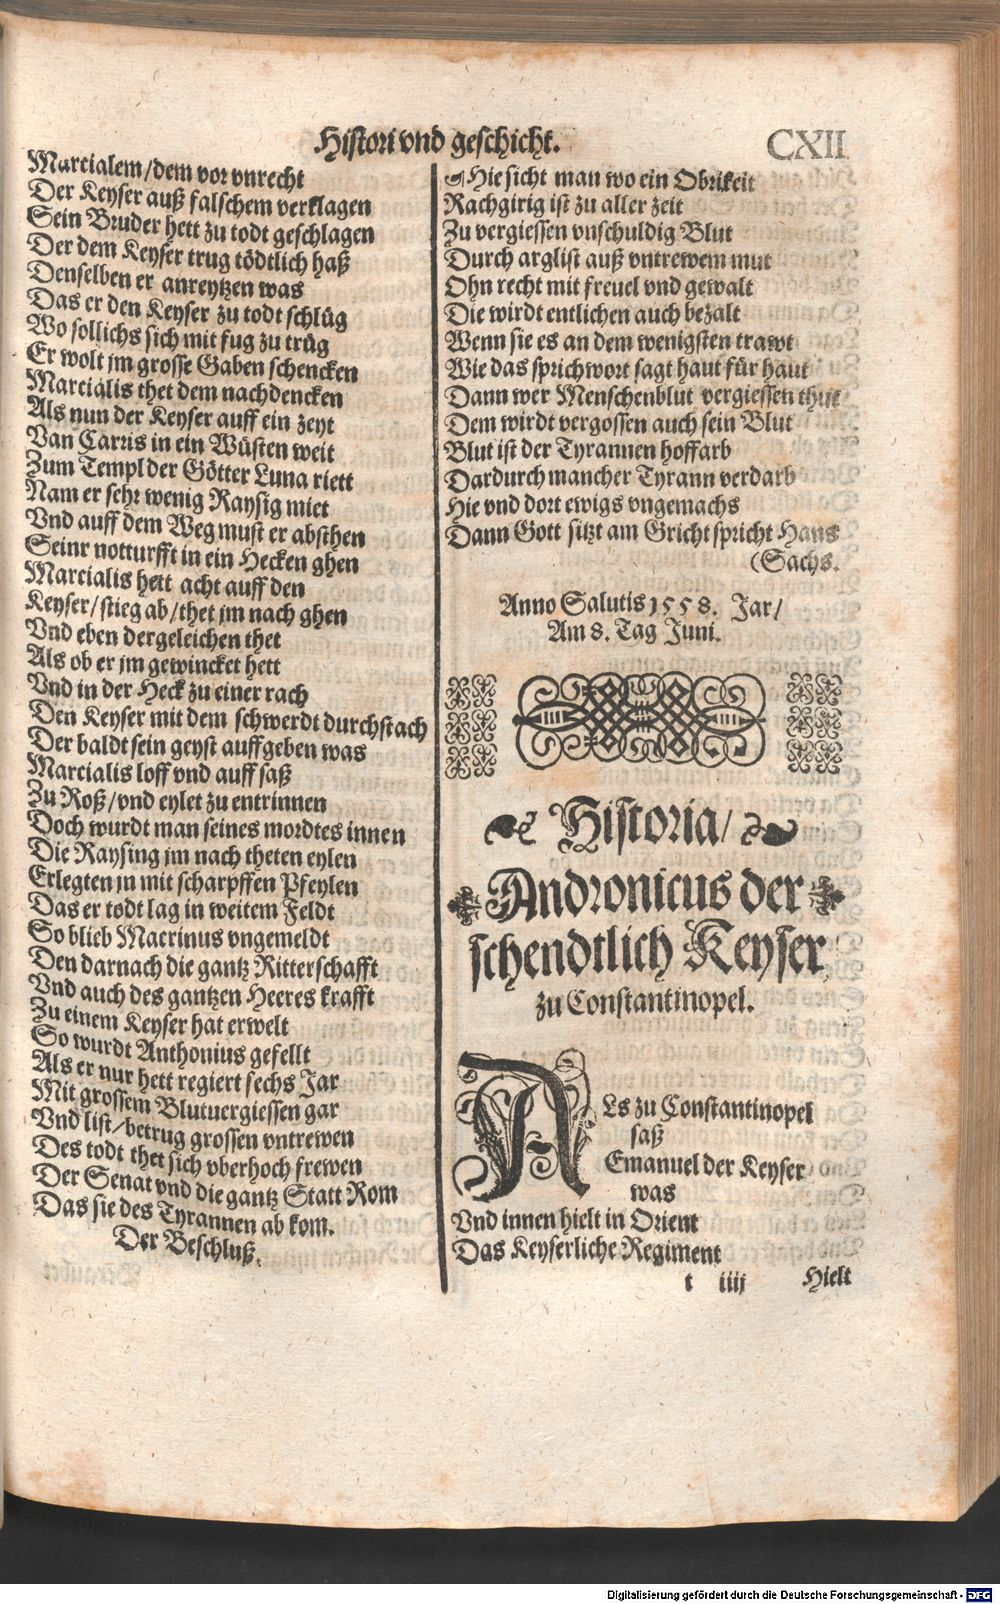 Histori vnd geschicht.
CXII
Martialem/dem vor vnrecht
Der Keyser auß falschem verklagen
Sein Bruder hett zu todt geschlagen
Der dem Keyser trug tödtlich haß
Denselben er anreytzen was
Das er den Keyser zu todt schlüg
Wo sollichs sich mit fug zu trüg
Er wolt jm grosse Gaben schencken
Martialis thet dem nachdencken
Als nun der Keyser auff ein zeyt
Van Carris in ein Wüsten weit
Zum Templ der Götter Luna riett
Nam er sehr wenig Raysig miet
Vnd auff dem Weg must er absthen
Seinr notturfft in ein Hecken ghen
Martialis hett acht auff den
Keyser/stieg ab/thet jm nach ghen
Vnd eben dergeleichen thet
Als ob er jm gewincket hett
Vnd in der Heck zu einer rach
Den Keyser mit dem schwerdt durchstach
Der baldt sein geyst auffgeben was
Martialis loff vnd auff saß
Zu Roß/vnd eylet zu entrinnen
Doch wurdt man seines mordtes innen
Die Raysing jm nach theten eylen
Erlegten jn mit scharpffen Pfeylen
Das er todt lag in weitem Feldt
So blieb Macrinus vngemeldt
Den darnach die gantz Ritterschafft
Vnd auch des gantzen Heeres krafft
Zu einem Keyser hat erwelt
So wurdt Anthonius gefellt
Als er nur hett regiert sechs Jar
Mit grossem Blutuergiessen gar
Vnd list/betrug grossen vntrewen
Des todt thet sich vberhoch frewen
Der Senat vnd die gantz Statt Rom
Das sie des Tyrannen ab kom.
Der Beschluß.
Hie sicht man wo ein Obrikeit
Rachgirig ist zu aller zeit
Zu vergiessen vnschuldig Blut
Durch arglist auß vntrewem mut
Ohn recht mit freuel vnd gewalt
Die wirdt entlichen auch bezalt
Wenn sie es an dem wenigsten trawt
Wie das sprichwort sagt haut für haut
Dann wer Menschenblut vergiessen thut
Dem wirdt vergossen auch sein Blut
Blut ist der Tyrannen hoffarb
Dardurch mancher Tyrann verdarb
Hie vnd dort ewigs vngemachs
Dann Gott sitzt am Gricht spricht Hans
(Sachs.
Anno Salutis 1558. Jar/
Am 8. Tag Juni.
Historia/
Andronicus der
schendtlich Keyser
zu Constantinopel.
ALs zu Constantinopel
saß
Emanuel der Keyser
was
Vnd innen hielt in Orient
Das Keyserliche Regiment
t iiij
Hielt
Digitalisierung gefördert durch die Deutsche Forschungsgemeinschaft - DFG